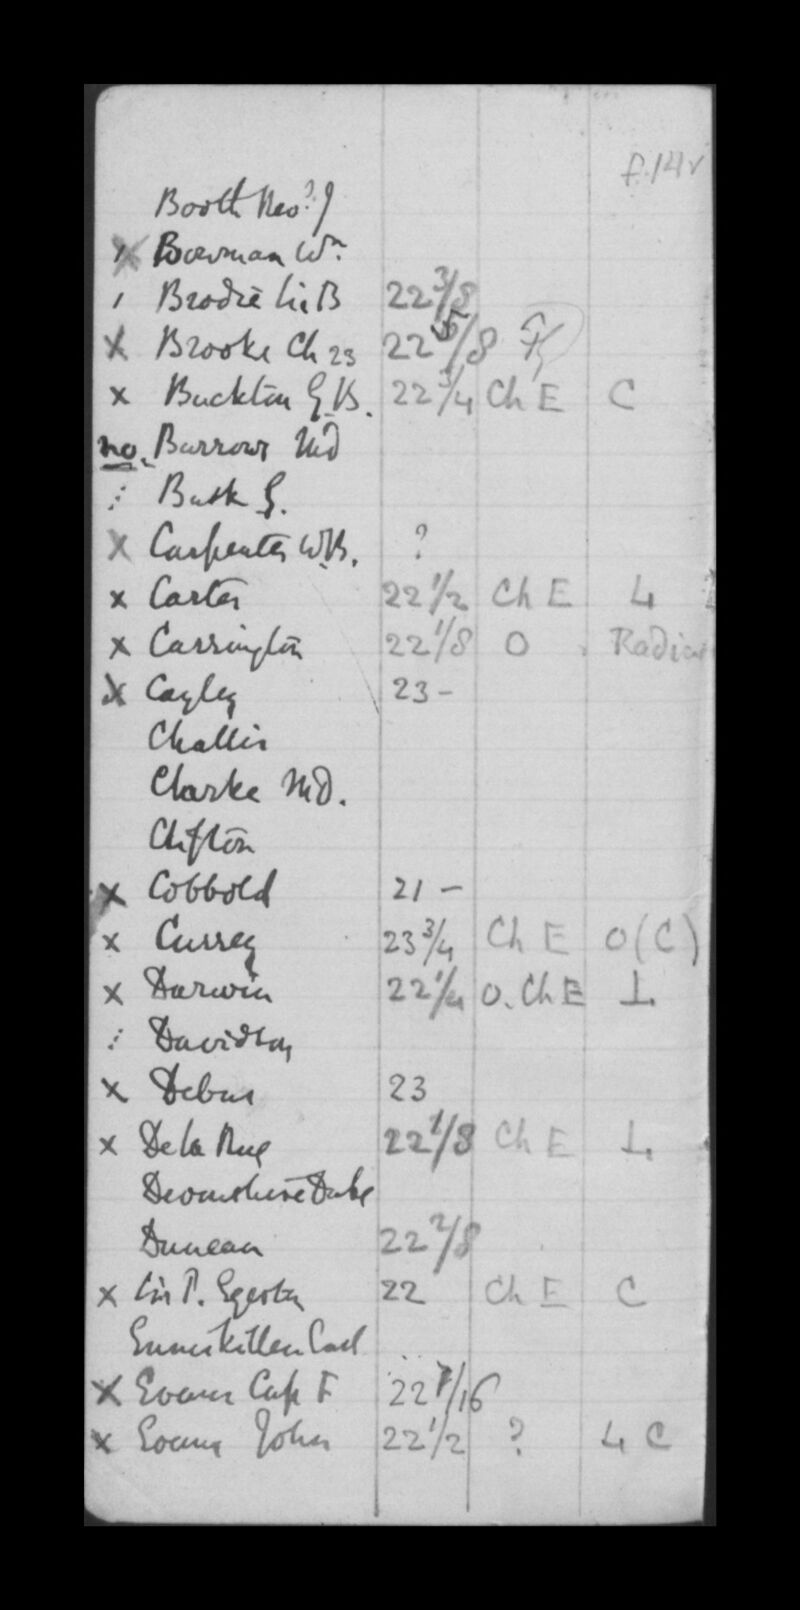 f.14v
Booth Rev? J
x Bowman Wm
Brodie Sir B 22 3/8
x Brooke Ch 23 22 5/8
x Buckton G.B. 22 3/4 Ch E C
no. Burrows MD
Busk G.
x Carpenter W.B. ?
x Carter 22 1/2 Ch E L
x Carrington 22 1/8 O Radica
x Cayley 23 –
Challis
Clarke MD.
Clifton
x Cobbold 21 –
x Currey 23 3/4 Ch E O (C)
x Darwin 22 1/4 O. Ch E L
Davidson
x Debus 23
x De la Rue 22 1/8 Ch E L
Devonshire Duke
Duncan 22 2/8
x Sir P. Egerton 22 Ch E C
Enniskillen Earl
x Evans Cap F 22 7/16
x Evans John 22 1/2 ? L C